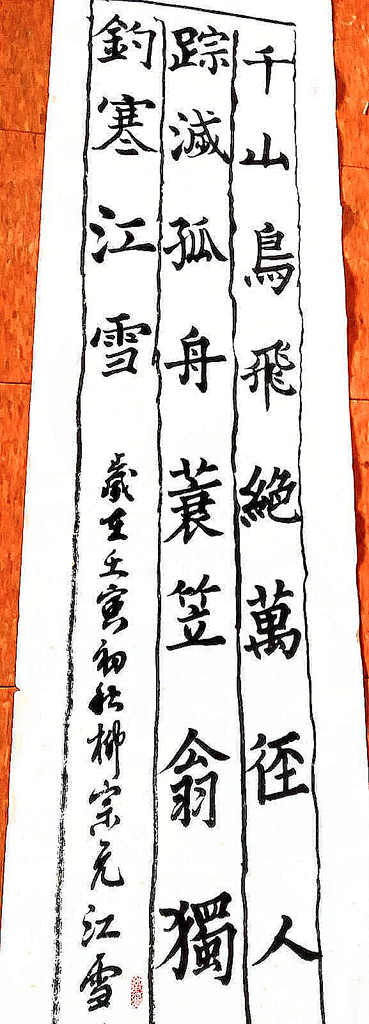 千山鳥飛絕萬徑人
踪滅孤舟蓑笠翁獨
釣寒江雪
歲在壬寅初秋柳宗元江雪